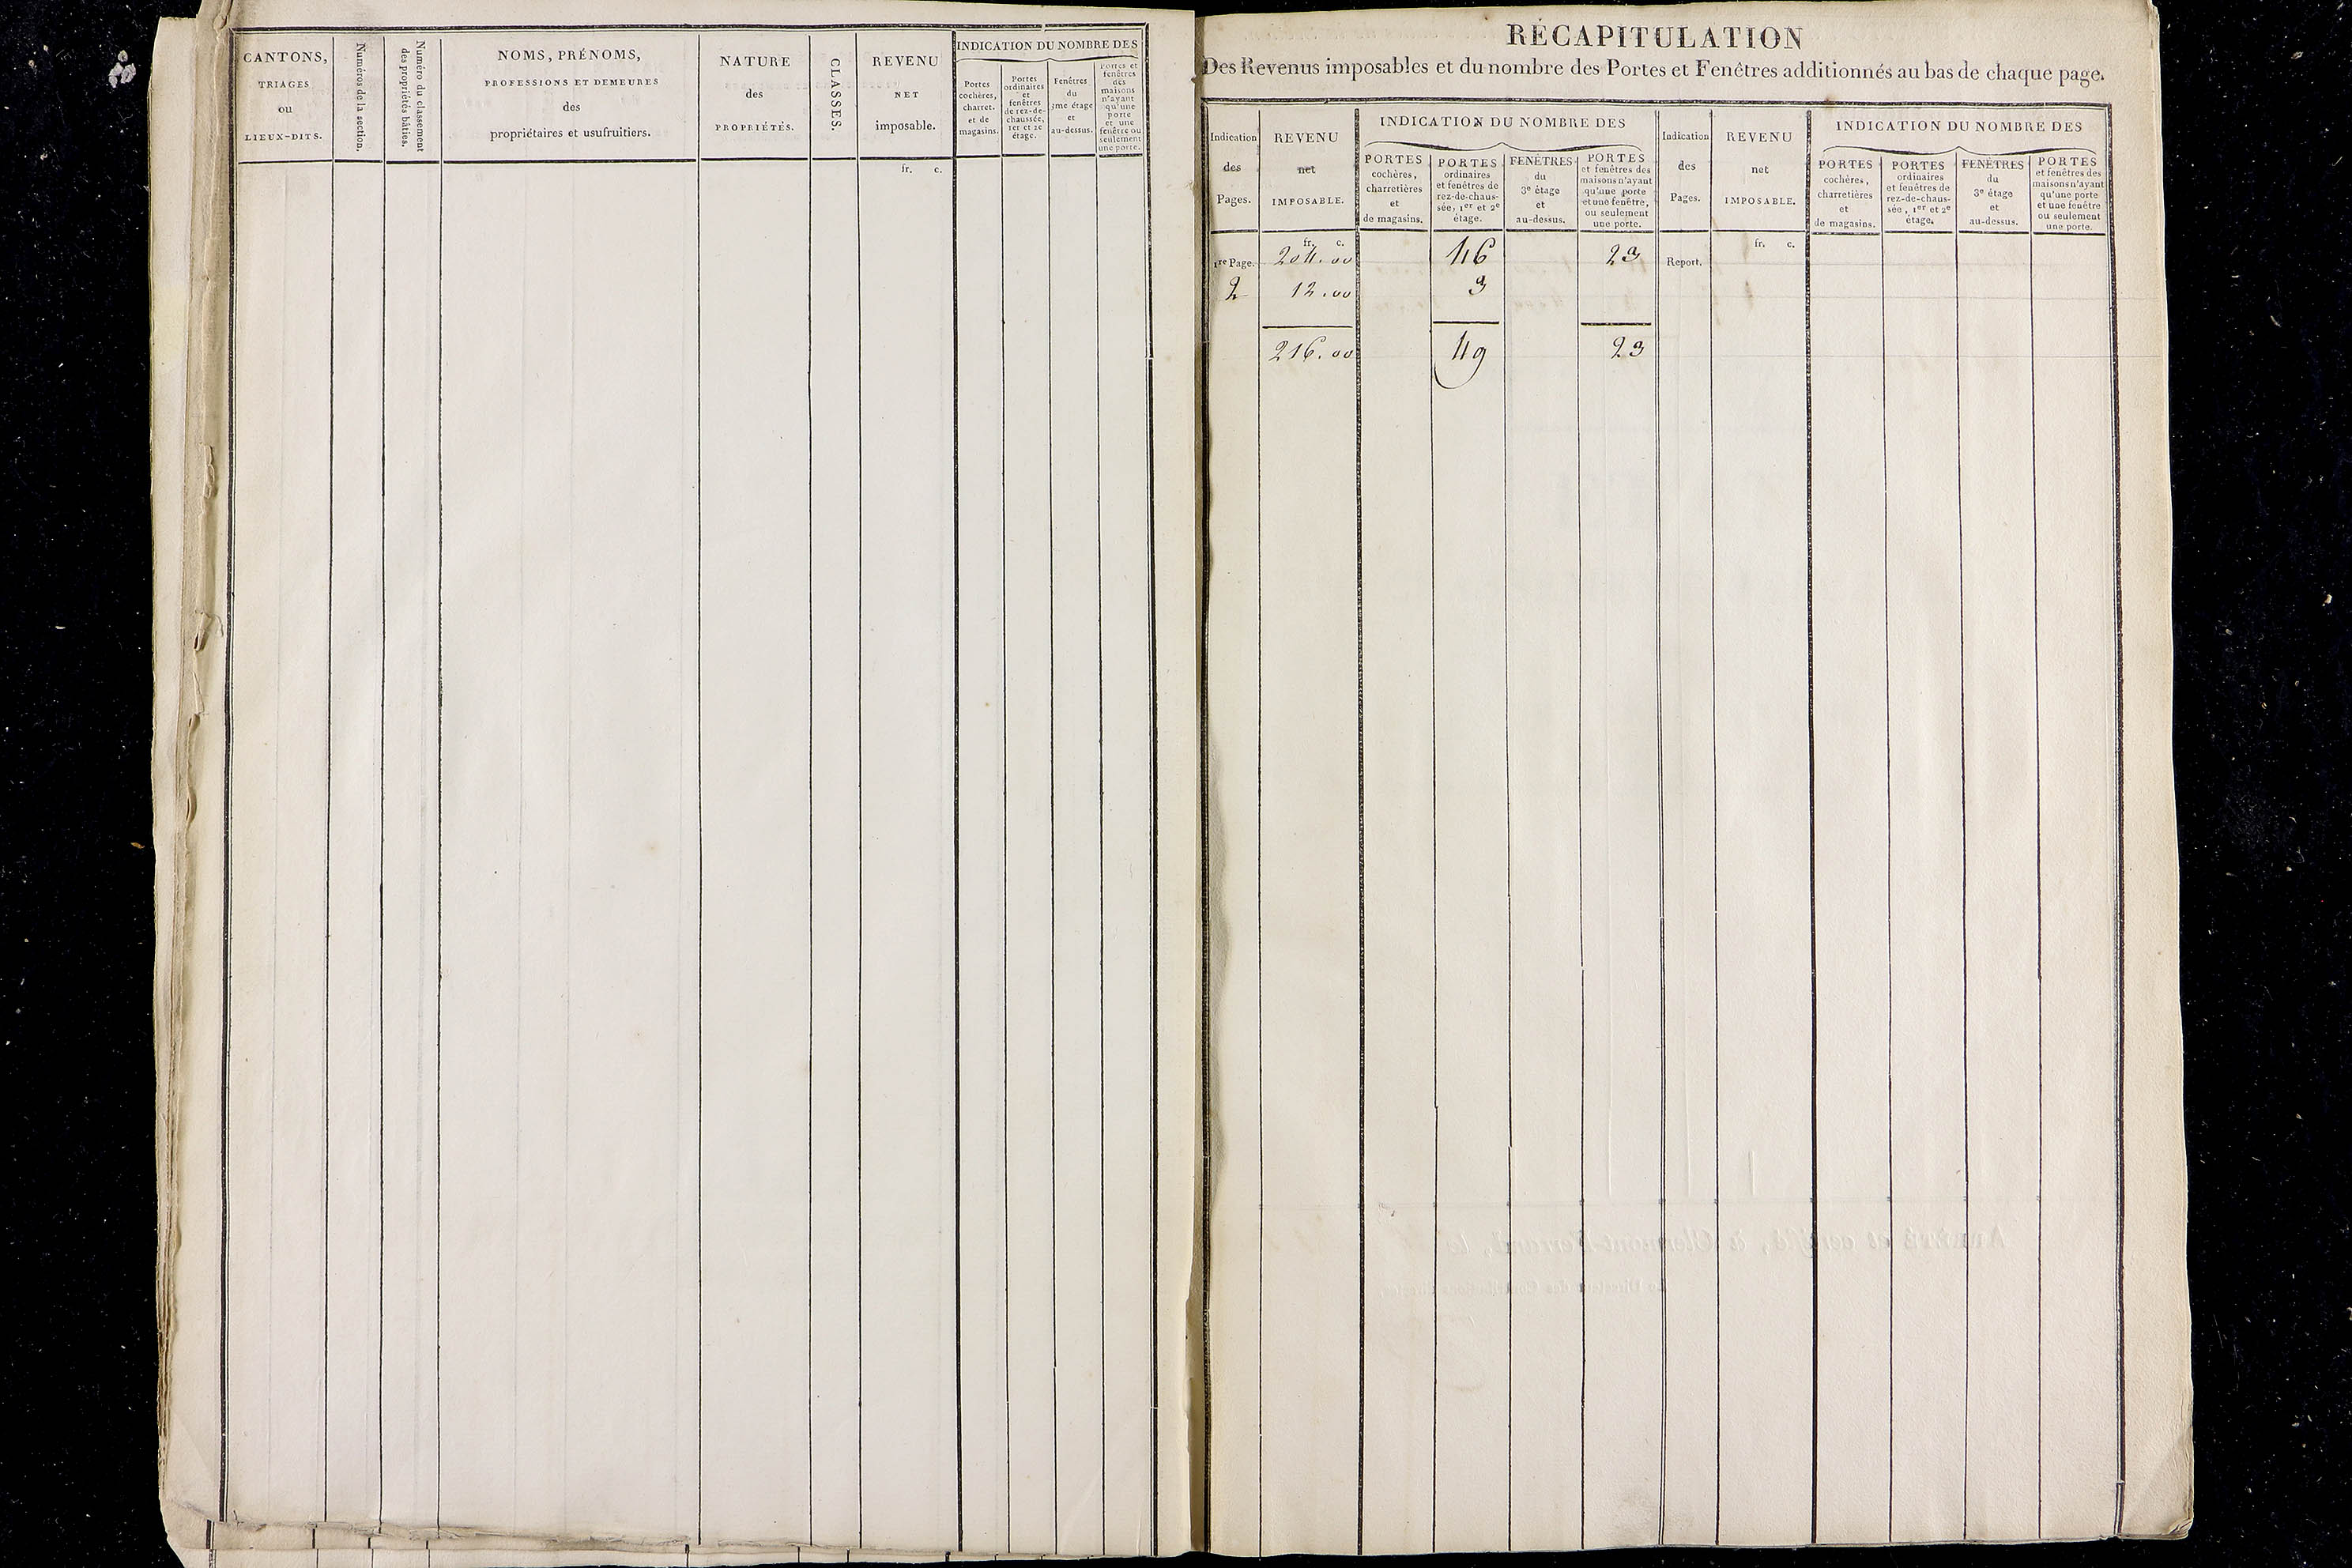 CANTONS,
TRIAGES
ou
LIEUX-DITS.
Numéros de la section.
Numéro du classement
des propriétés bâties.
NOMS, PRÉNOMS,
PROFESSIONS ET DEMEURES
des
propriétaires et usufruitiers.
NATURE
des
PROPRIÉTÉS.
CLASSES.
REVENU
NET
imposable.
fr. c.
INDICATION DU NOMBRE DES
Portes
cochères,
charret.
et de
magasins.
Portes
ordinaires
et
fenêtres
de rez-de-
chaussée,
1er et 2e
étage.
Fenêtres
du
3me étage
et
au-dessus.
Portes et
fenêtres
des
maisons
n'ayant
qu'une
porte
et une
fenêtre ou
seulement
une porte.
RÉCAPITULATION
Des Revenus imposables et du nombre des Portes et Fenêtres additionnés au bas de chaque page.
Indication
des
Pages.
REVENU
net
IMPOSABLE.
INDICATION DU NOMBRE DES
PORTES
cochères,
charretières
et
de magasins.
PORTES
ordinaires
et fenêtres de
rez-de-chaus-
sée, 1er et 2e
étage.
FENÊTRES
du
3e étage
et
au-dessus.
PORTES
et fenêtres des
maisons n'ayant
qu'une porte
et une fenêtre,
ou seulement
une porte.
Indication
des
Pages.
REVENU
net
IMPOSABLE.
INDICATION DU NOMBRE DES
PORTES
cochères,
charretières
et
de magasins.
PORTES
ordinaires
et fenêtres de
rez-de-chaus-
sée, 1er et 2e
étage.
FENÊTRES
du
3e étage
et
au-dessus.
PORTES
et fenêtres des
maisons n'ayant
qu'une porte
et une fenêtre
ou seulement
une porte.
fr. c.
fr. c.
1re Page. 204.00 46 23 Report.
2 12.00 3
216.00 49 23